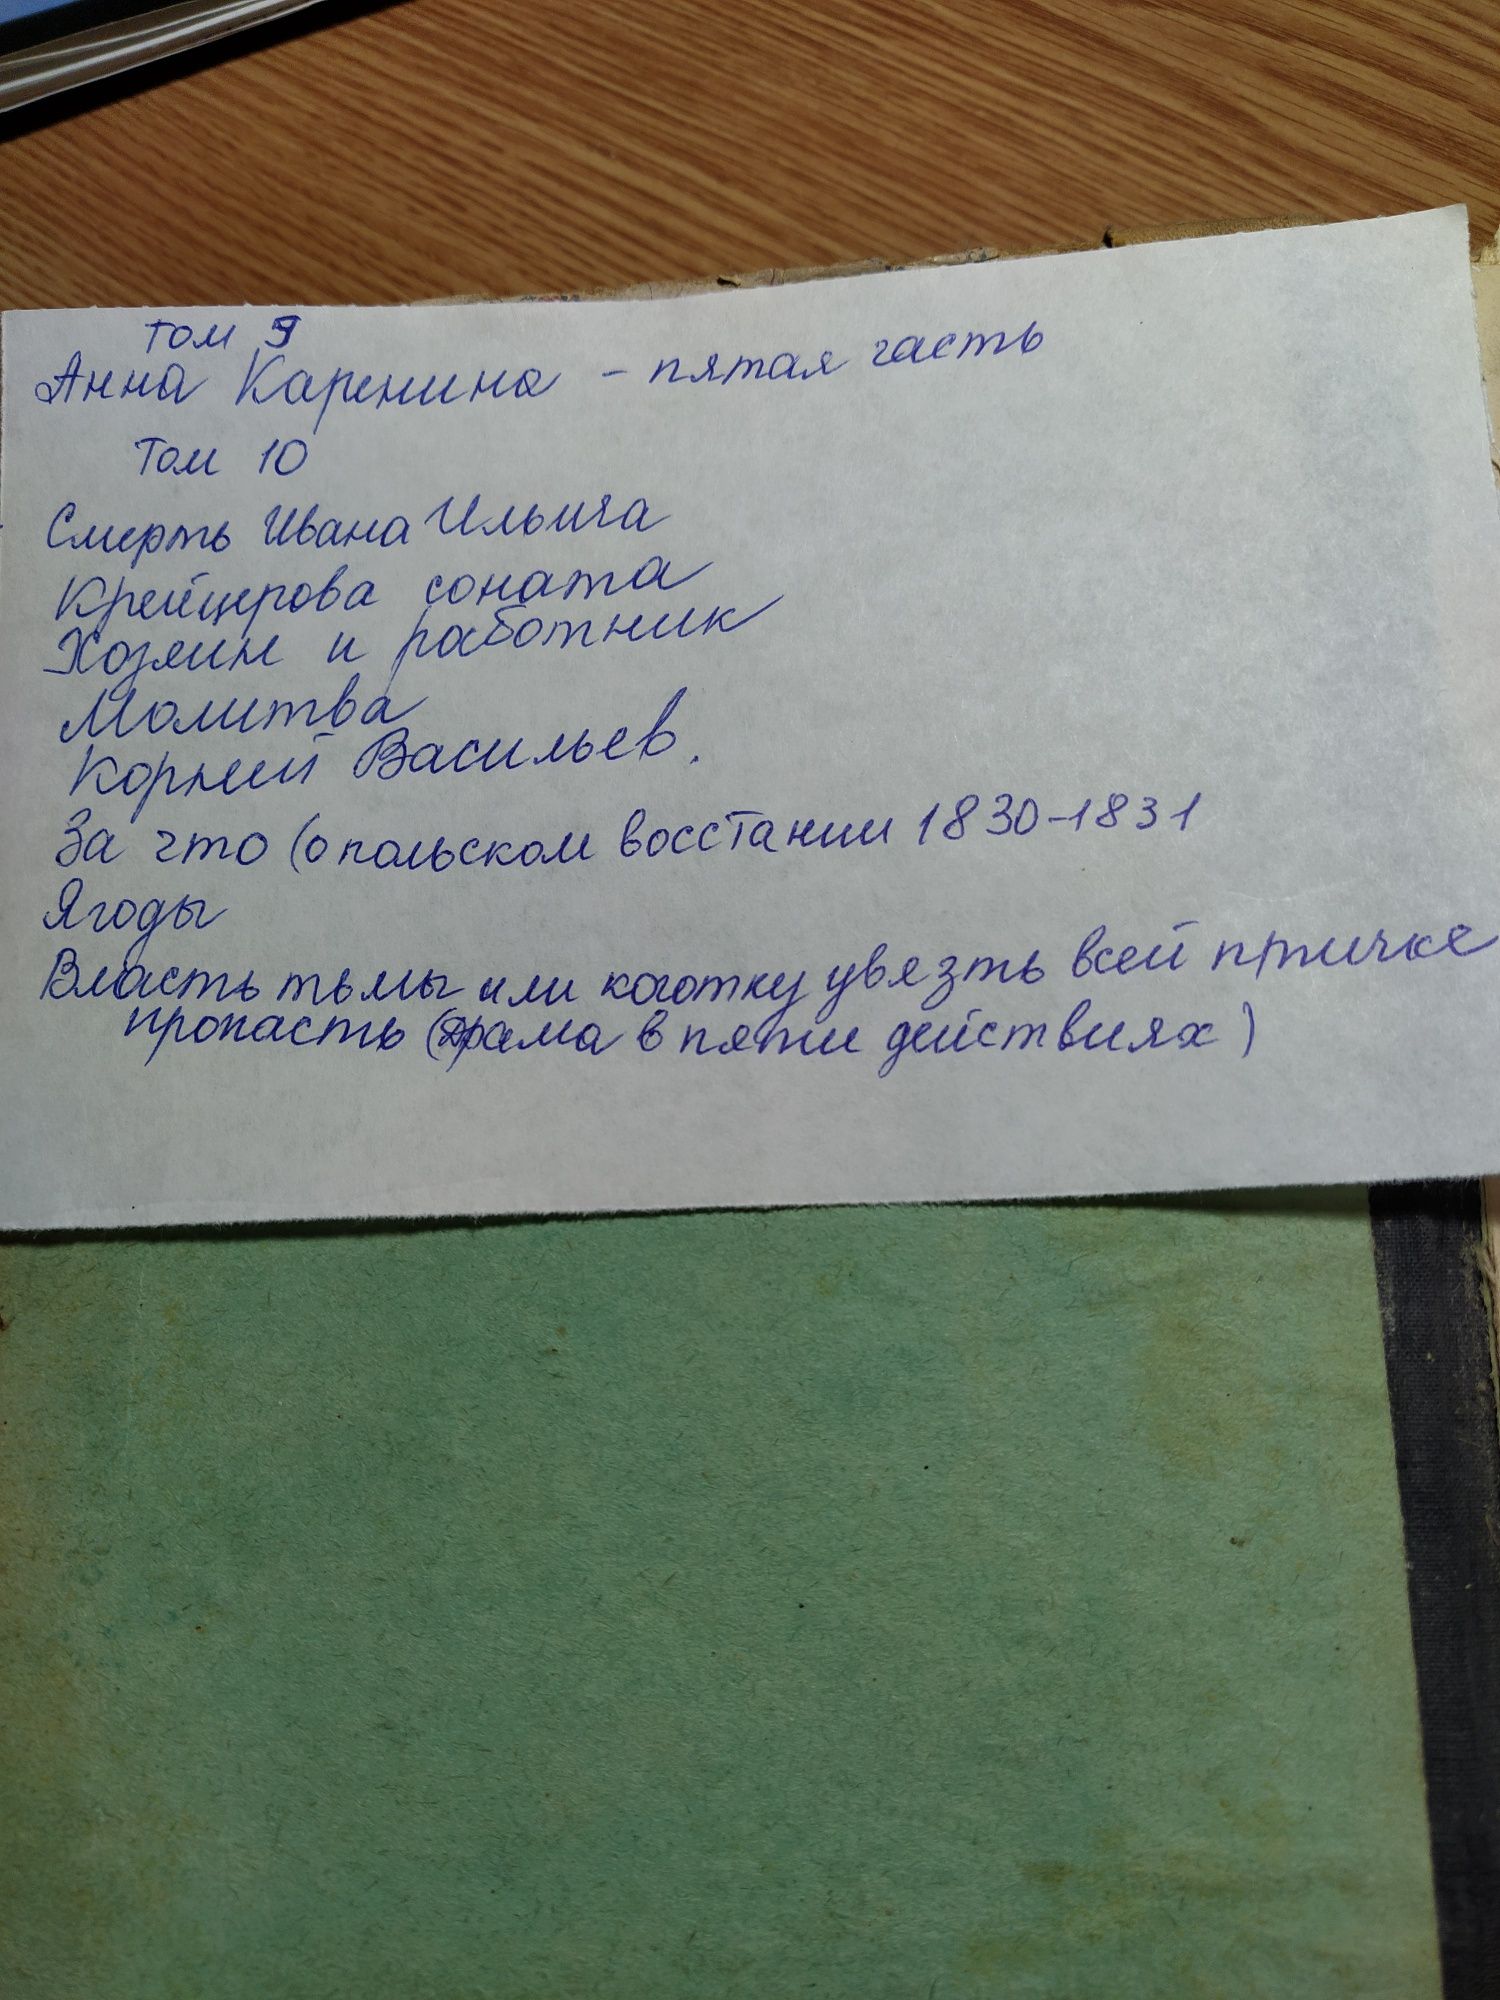 том 9
Анна Каренина - пятая часть
Том 10
Смерть Ивана Ильича
Крейцерова соната
Хозяин и работник
Молитва
Корней Васильев.
За что (о польском восстании 1830-1831
Ягоды
Власть тьмы или коготку увязть всей птичке
пропасть (драма в пяти действиях)